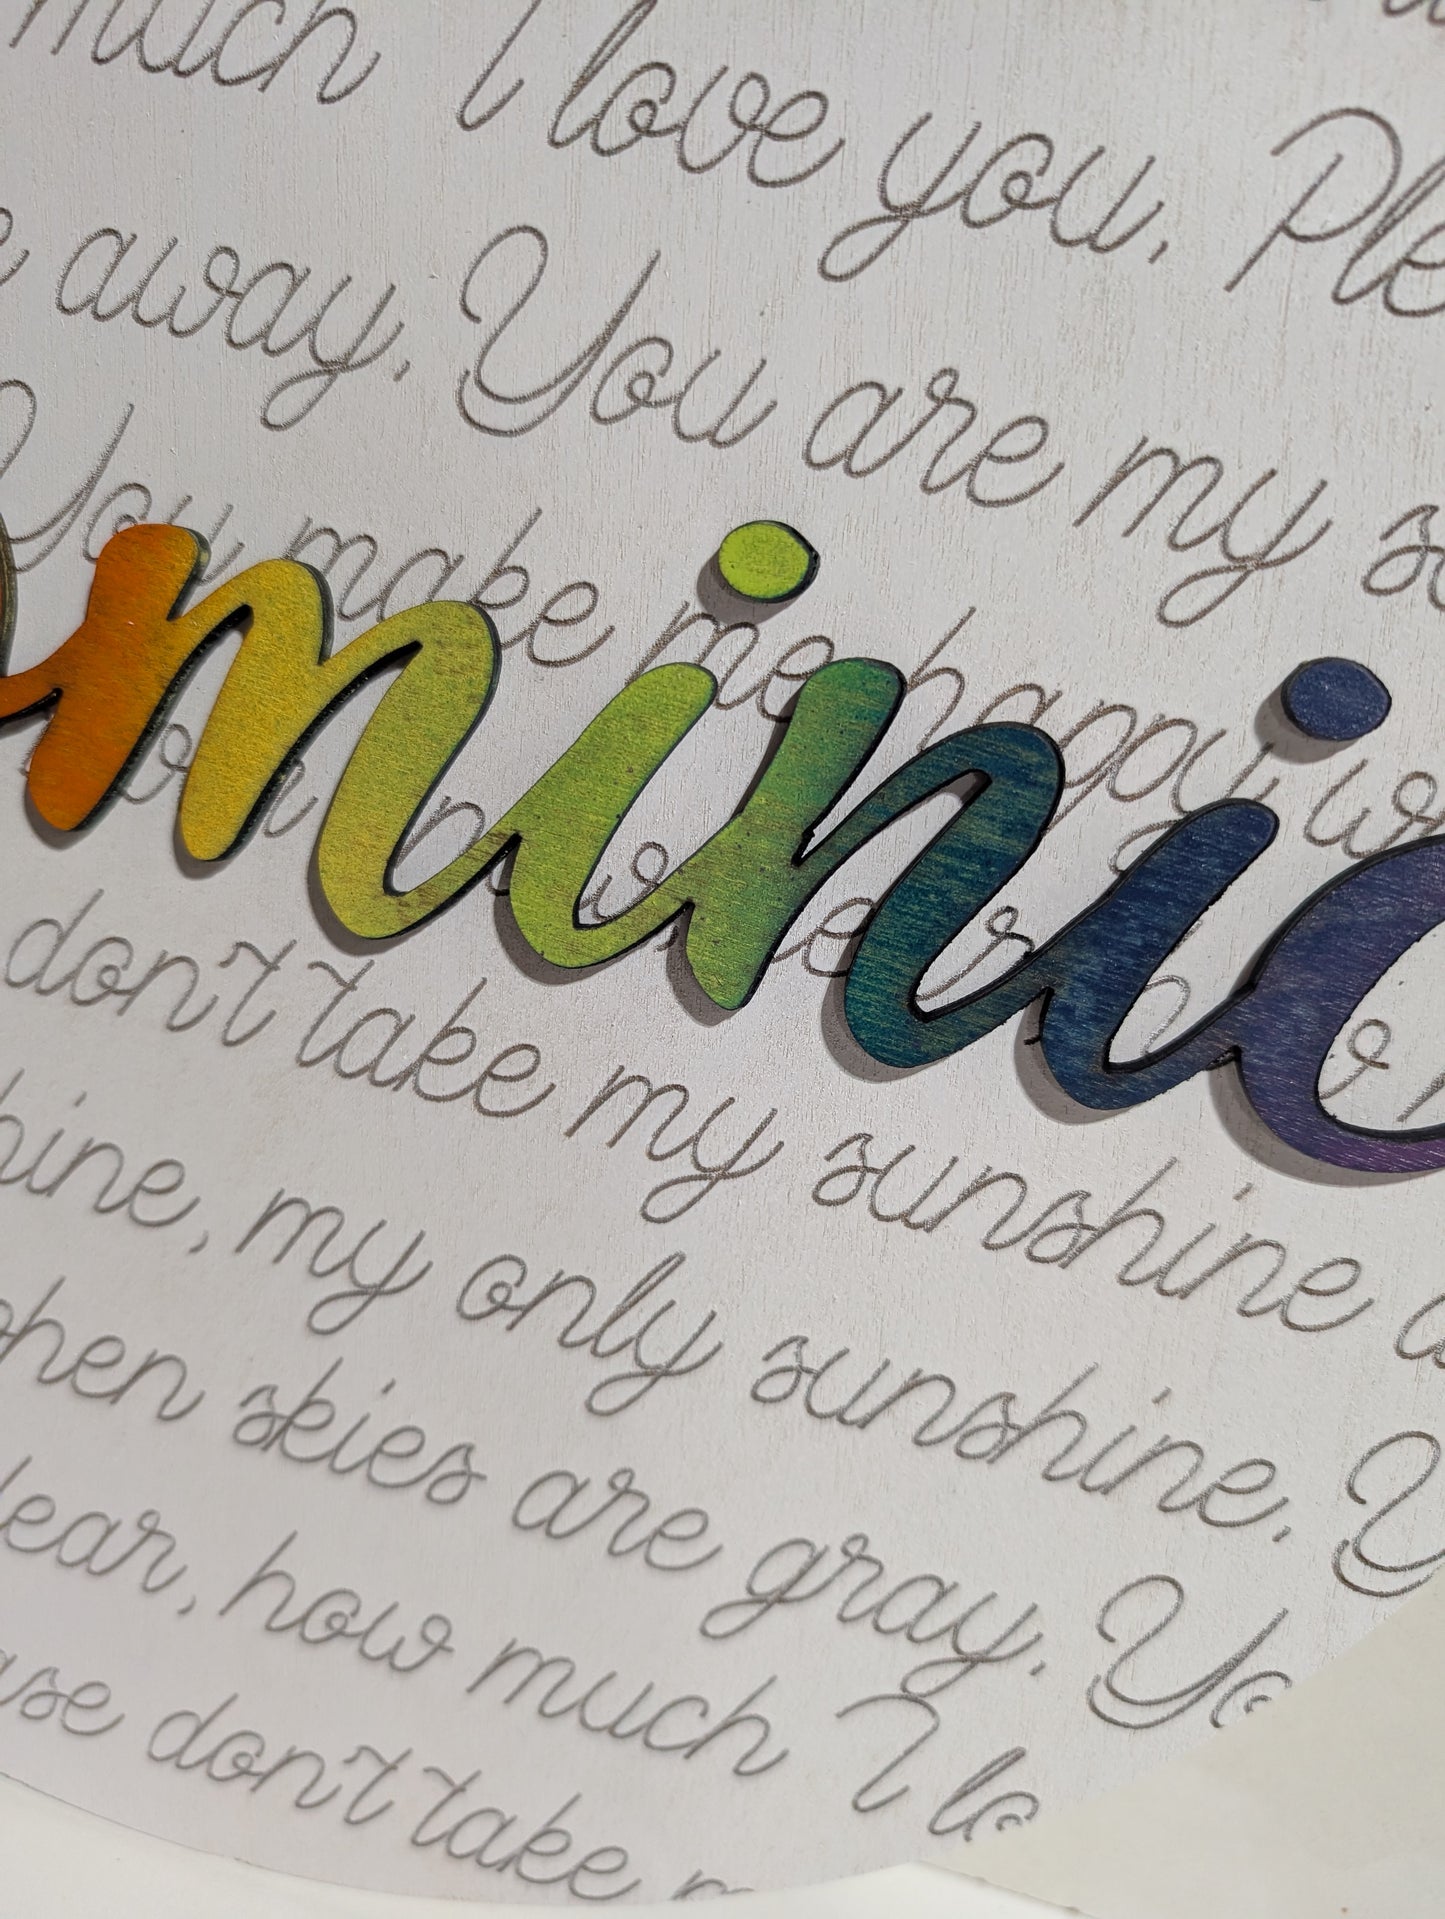 much I love you. Ple
e away. You are my s
You make me happy, w
ominic
don't take my sunshine a
hine, my only sunshine. Y
hen skies are gray. Yo
dear, how much I lo
ase don't take m